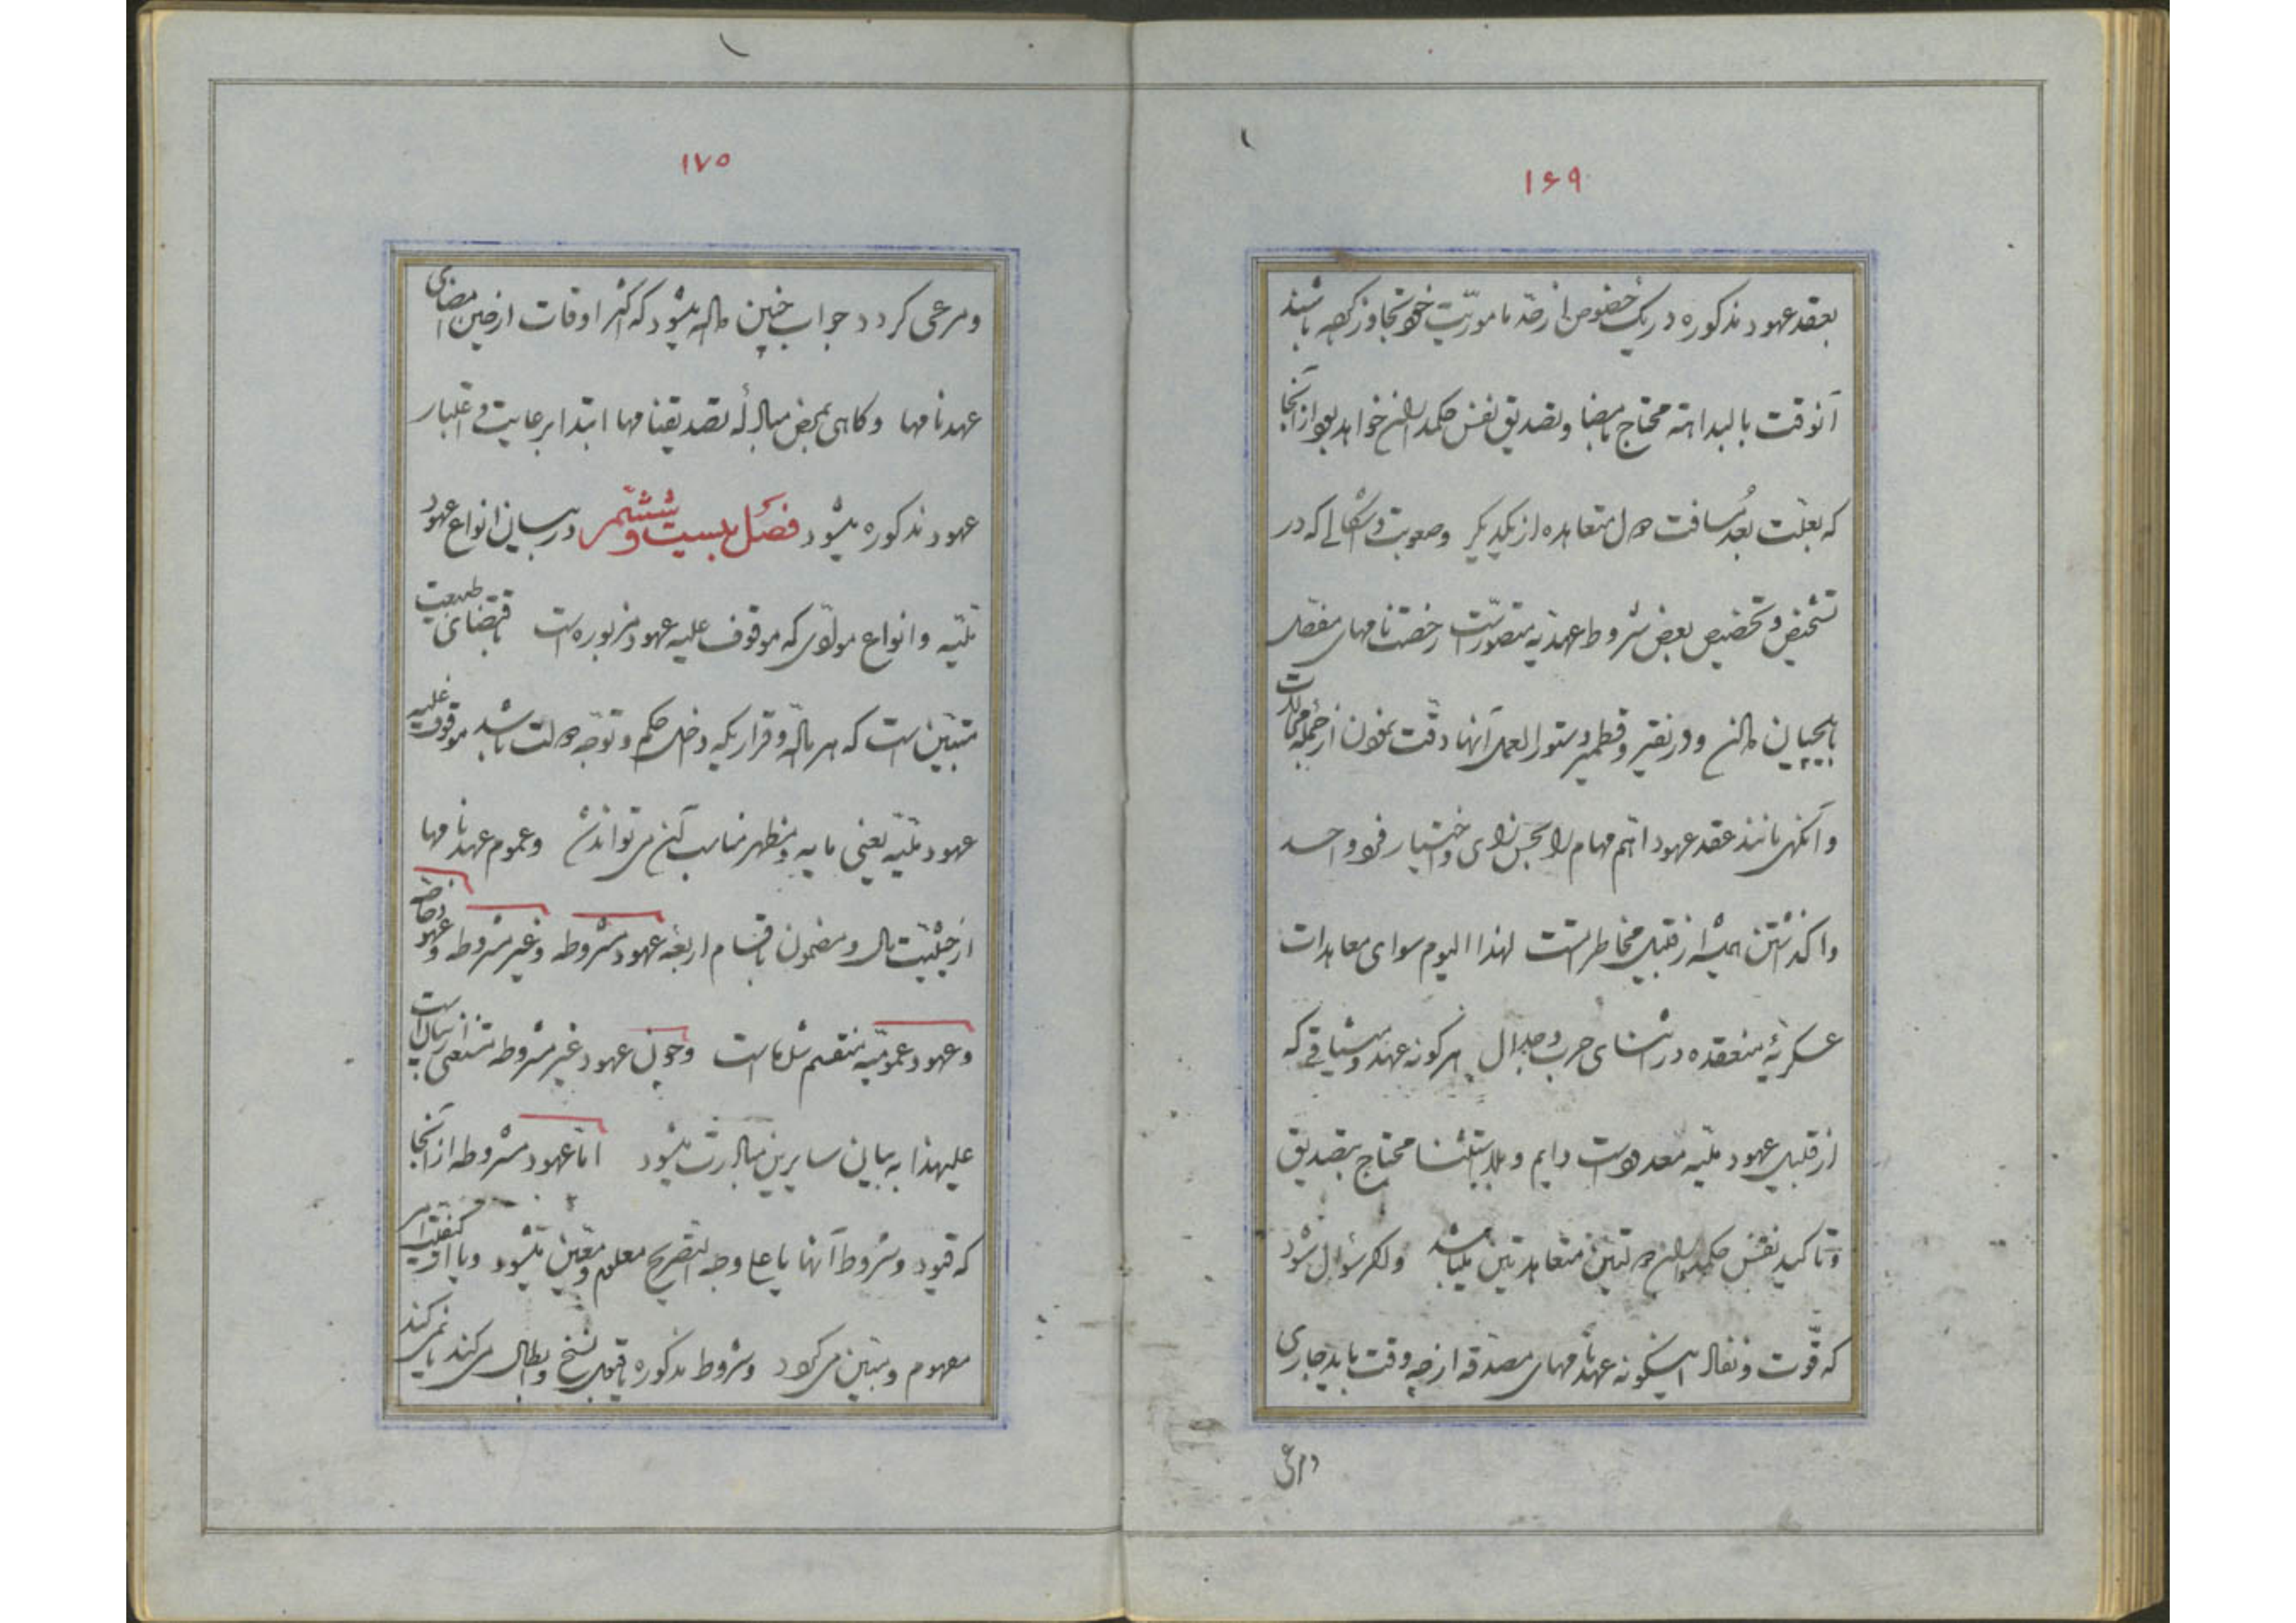 ۱۶۹
بعقد عهود مذکوره در یک خصوص از حدّ مأموریّت خود تجاوز کرده باشند
آنوقت بالبداهته محتاج بامضا و تصدیق نفس حکمداران خواهد بود از آنجا
که بعلّت بُعد مسافت دول متعاهده از یکدیگر وصعوبت و اشکالی که در
تشخیص و تخصیص بعض شروط عهدیّه متصوّر است رخصتنامهای مفصّل
بایلچیان دادن و در نقیر و قطمیر دستورالعمل آنها دقّت نمودن از جمله محالات
و آنگهی مانند عقد عهود اهّم مهام را بمحض رای و اختیار فرد واحد
واگذاشتن همیشه از قبیل مخاطراتست لهذا الیوم سوای معاهدات
عسکریّهٔ منعقده در اثنای حرب و جدال هرگونه عهد و میثاقی که
از قبیل عهود ملّیه معدود است دایم و بلا استثنا محتاج بتصدیق
و تأکید نفس حکمداران دولتین متعاهدتین میباشد و اگر سؤال شود
که قوّت و نفاذ اینگونه عهدنامهای مصدّقه از چه وقت باید جاری
ومرعی
۱۷۵
ومرعی کردد جواب چنین داده میشود که اکثر اوقات از حین امضای
عهدنامها وکاهی بمحض مبادلهٔ تصدیقنامها ابتدا برعایت و اعتبار
عهود مذکوره میشود فصل بیست و ششم در بیان انواع عهود
ملّیه و انواع موادّی که موقوف علیه عهود مزبوره است باقتضای طبیعت
متبیّن است که هر ماده و قراریکه داخل حکم و توجّه دولت باشد موقوف علیه
عهود ملّیه یعنی مایه و مظهر مناسب آن می تواند شد وعموم عهدنامها
از حیثیّت مال و مضمون باقسام اربعه عهود مشروطه و غیر مشروطه و عهود خاصّه
و عهود عمومیّه منقسم شده است و چون عهود غیر مشروطه مستغنی از بیان است
علیهذا به بیان سایرین مبادرت میشود امّا عهود مشروطه از آنجا
که قیود و شروط آنها یا علی وجه التصریح معلوم و معیّن میشود ویا از کیفیّت امر
مفهوم و مبیّن می کردد و شروط مذکوره یا قبول نسخ و ابطال می کند یا نمی کند